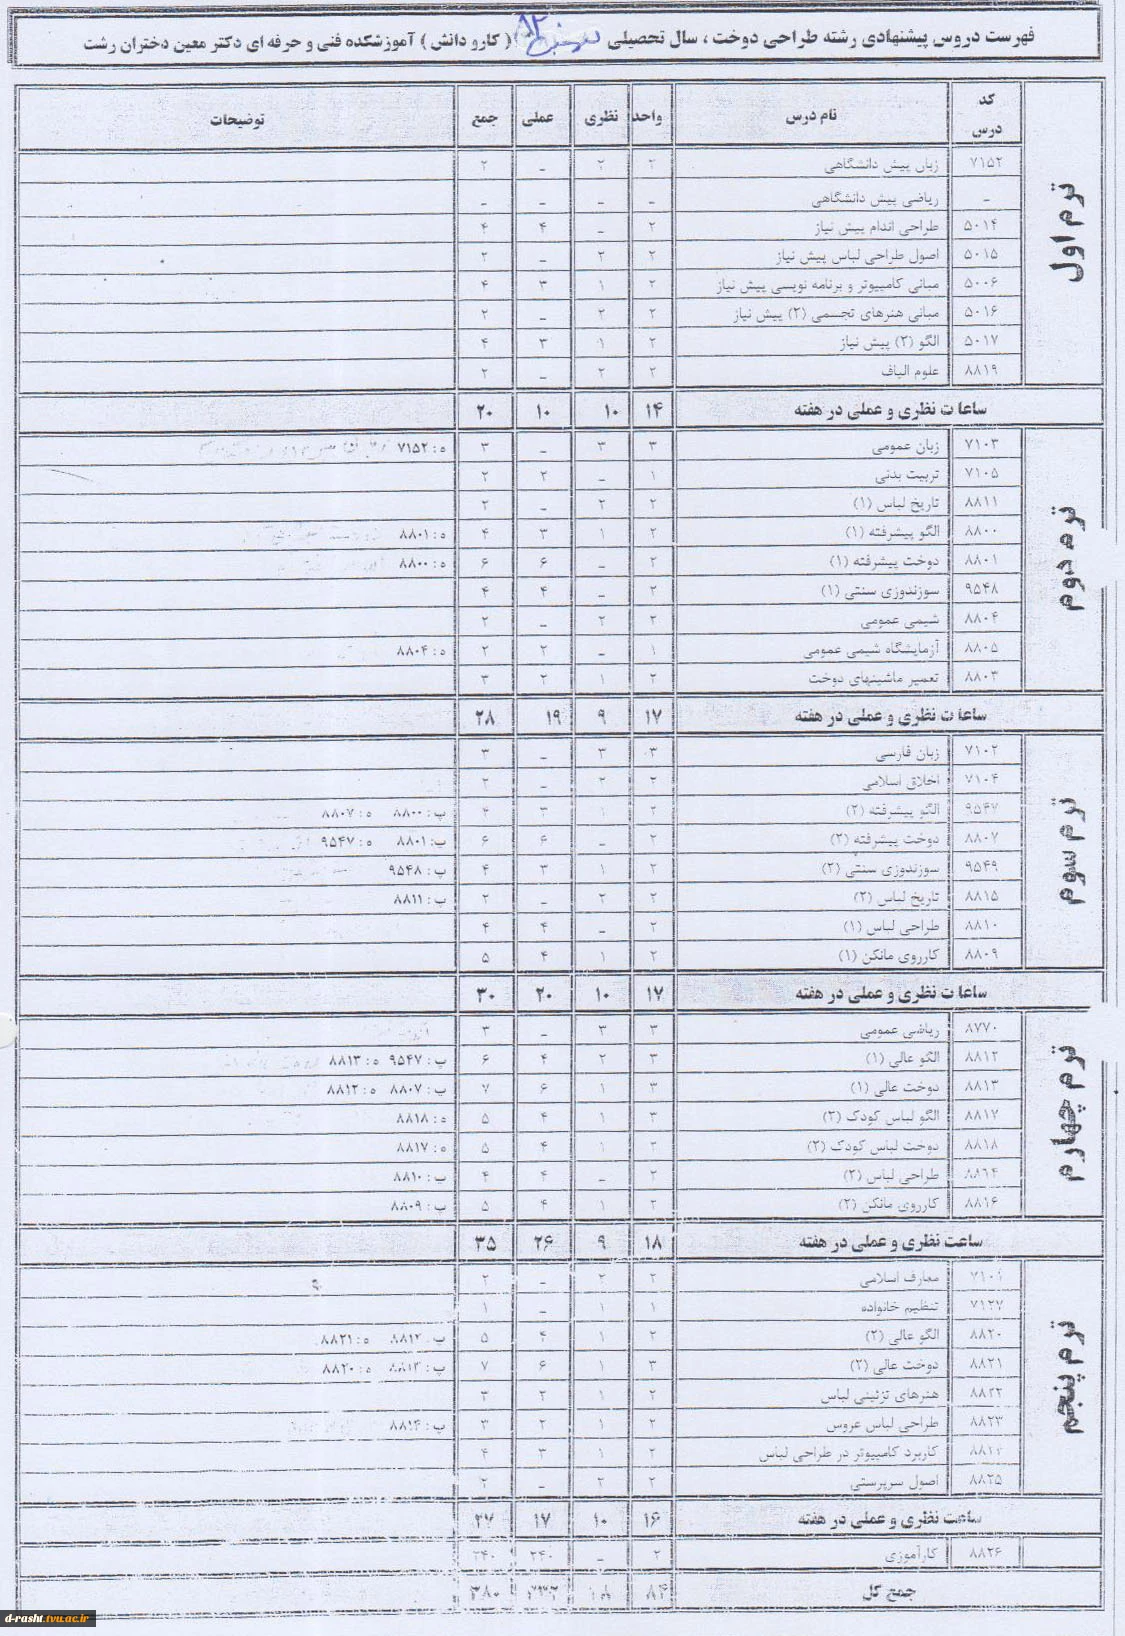 فهرست دروس پیشنهادی رشته طراحی دوخت ، سال تحصیلی ۹۲ ( کارو دانش ) آموزشکده فنی و حرفه ای دکتر معین دختران رشت
کد درس نام درس واحد نظری عملی جمع توضیحات
ترم اول
۷۱۵۲ زبان پیش دانشگاهی ۲ ۲ _ ۲
_ ریاضی پیش دانشگاهی _ _ _ _
۵۰۱۴ طراحی اندام پیش نیاز ۲ _ ۴ ۴
۵۰۱۵ اصول طراحی لباس پیش نیاز ۲ ۲ _ ۲
۵۰۰۶ مبانی کامپیوتر و برنامه نویسی پیش نیاز ۲ ۱ ۳ ۴
۵۰۱۶ مبانی هنرهای تجسمی (۲) پیش نیاز ۲ ۲ _ ۲
۵۰۱۷ الگو (۲) پیش نیاز ۲ ۱ ۳ ۴
۸۸۱۹ علوم الیاف ۲ ۲ _ ۲
ساعات نظری و عملی در هفته ۱۴ ۱۰ ۱۰ ۲۰
ترم دوم
۷۱۰۳ زبان عمومی ۳ ۳ _ ۳ ه : ۷۱۵۲
۷۱۰۵ تربیت بدنی ۱ _ ۲ ۲
۸۸۱۱ تاریخ لباس (۱) ۲ ۲ _ ۲
۸۸۰۰ الگو پیشرفته (۱) ۲ ۱ ۳ ۴ ه : ۸۸۰۱
۸۸۰۱ دوخت پیشرفته (۱) ۲ _ ۶ ۶ ه : ۸۸۰۰
۹۵۴۸ سوزندوزی سنتی (۱) ۲ _ ۴ ۴
۸۸۰۴ شیمی عمومی ۲ ۲ _ ۲
۸۸۰۵ آزمایشگاه شیمی عمومی ۱ _ ۲ ۲ ه : ۸۸۰۴
۸۸۰۳ تعمیر ماشینهای دوخت ۲ ۱ ۲ ۳
ساعات نظری و عملی در هفته ۱۷ ۹ ۱۹ ۲۸
ترم سوم
۷۱۰۲ زبان فارسی ۳ ۳ _ ۳
۷۱۰۴ اخلاق اسلامی ۲ ۲ _ ۲
۹۵۴۷ الگو پیشرفته (۲) ۲ ۱ ۳ ۴ پ : ۸۸۰۰ ه : ۸۸۰۷
۸۸۰۷ دوخت پیشرفته (۲) ۲ _ ۶ ۶ پ : ۸۸۰۱ ه : ۹۵۴۷
۹۵۴۹ سوزندوزی سنتی (۲) ۲ ۱ ۳ ۴ پ : ۹۵۴۸
۸۸۱۵ تاریخ لباس (۲) ۲ ۲ _ ۲ پ : ۸۸۱۱
۸۸۱۰ طراحی لباس (۱) ۲ _ ۴ ۴
۸۸۰۹ کارروی مانکن (۱) ۲ ۱ ۴ ۵
ساعات نظری و عملی در هفته ۱۷ ۱۰ ۲۰ ۳۰
ترم چهارم
۸۷۷۰ ریاضی عمومی ۳ ۳ _ ۳
۸۸۱۲ الگو عالی (۱) ۳ ۲ ۴ ۶ پ : ۹۵۴۷ ه : ۸۸۱۳
۸۸۱۳ دوخت عالی (۱) ۳ ۱ ۶ ۷ پ : ۸۸۰۷ ه : ۸۸۱۲
۸۸۱۷ الگو لباس کودک (۲) ۳ ۱ ۴ ۵ ه : ۸۸۱۸
۸۸۱۸ دوخت لباس کودک (۲) ۱ ۴ ۵ ه : ۸۸۱۷
۸۸۱۴ طراحی لباس (۲) ۲ _ ۴ ۴ پ : ۸۸۱۰
۸۸۱۶ کارروی مانکن (۲) ۲ ۱ ۴ ۵ پ : ۸۸۰۹
ساعت نظری و عملی در هفته ۱۸ ۹ ۲۶ ۳۵
ترم پنجم
۷۱۰۱ معارف اسلامی ۲ ۲ _ ۲
۷۱۲۷ تنظیم خانواده ۱ ۱ _ ۱
۸۸۲۰ الگو عالی (۲) ۲ ۱ ۴ ۵ پ : ۸۸۱۲ ه : ۸۸۲۱
۸۸۲۱ دوخت عالی (۲) ۳ ۱ ۶ ۷ پ : ۸۸۱۳ ه : ۸۸۲۰
۸۸۲۲ هنرهای تزئینی لباس ۲ ۱ ۲ ۳
۸۸۲۳ طراحی لباس عروس ۲ ۱ ۲ ۳ پ : ۸۸۱۴
کاربرد کامپیوتر در طراحی لباس ۲ ۱ ۳ ۴
۸۸۲۵ اصول سرپرستی ۲ ۲ _ ۲
ساعت نظری و عملی در هفته ۱۶ ۱۰ ۱۷ ۲۷
۸۸۲۶ کارآموزی ۲ _ ۲۴۰ ۲۴۰
جمع کل ۸۴
d-rasht.tvu.ac.ir